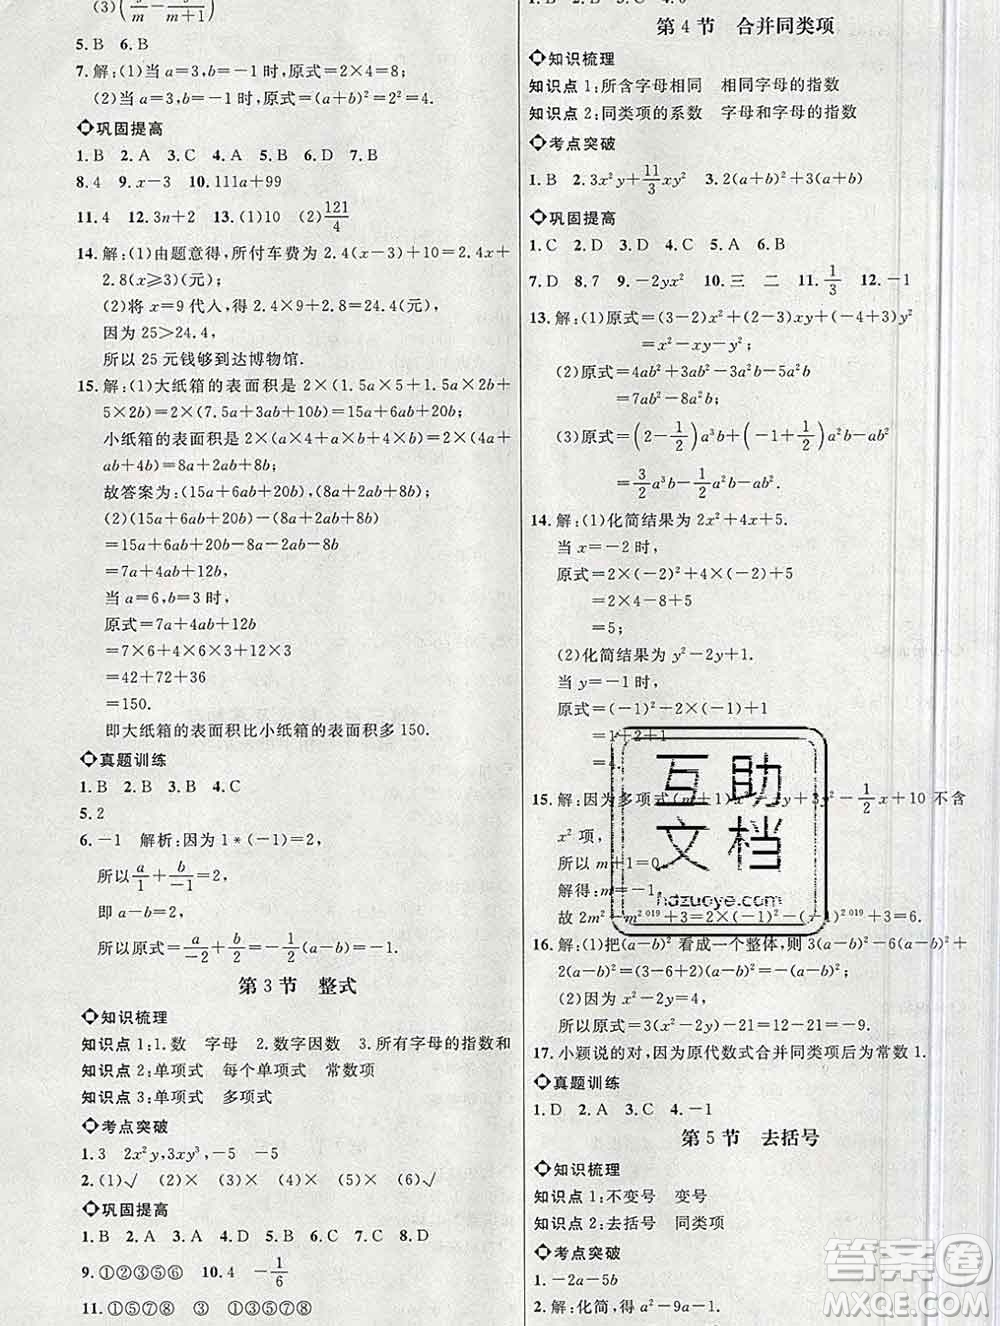 (3)(y/m − y/(m+1))
5.B 6.B
7.解:(1)当 a=4,b=−1 时,原式=2×4=8;
(2)当 a=3,b=−1 时,原式=(a+b)²=2²=4.
巩固提高
1.B 2.A 3.C 4.D 5.B 6.D 7.B
8.4 9.x−3 10.111a+99
11.4 12.3n+2 13.(1)10 (2)121/4
14.解:(1)由题意得,所付车费为 2.4(x−3)+10=2.4x+
2.8(x≥3)(元);
(2)将 x=9 代入,得 2.4×9+2.8=24.4,
因为 25>24.4,
所以 25 元钱够到达博物馆.
15.解:(1)大纸箱的表面积是 2×(1.5a×5+1.5a×2b+
5×2b)=2×(7.5a+3ab+10b)=15a+6ab+20b;
小纸箱的表面积是 2×(a×4+a×b+4×b)=2×(4a+
ab+4b)=8a+2ab+8b;
故答案为:(15a+6ab+20b),(8a+2ab+8b);
(2)(15a+6ab+20b)−(8a+2ab+8b)
=15a+6ab+20b−8a−2ab−8b
=7a+4ab+12b,
当 a=6,b=3 时,
原式=7a+4ab+12b
=7×6+4×6×3+12×3
=42+72+36
=150.
即大纸箱的表面积比小纸箱的表面积多 150.
真题训练
1.B 2.B 3.B 4.C
5.2
6.−1 解析:因为 1*(−1)=2,
所以 a/1 + b/−1 =2,
即 a−b=2,
所以原式= a/−2 + b/2 = −1/2(a−b)=−1.
第 3 节 整式
知识梳理
知识点 1:1.数 字母 2.数字因数 3.所有字母的指数和
知识点 2:单项式 每个单项式 常数项
知识点 3:单项式 多项式
考点突破
1.3 2x²y,3xy³,−5 −5
2.(1)√ (2)× (3)× (4)× (5)× (6)√
巩固提高
1.B 2.A 3.D 4.C 5.B 6.B 7.C 8.D
9.①②③⑤⑥ 10.4 −1/6
11.①⑤⑦⑧ ③ ①③⑤⑦⑧
第 4 节 合并同类项
知识梳理
知识点 1:所含字母相同 相同字母的指数
知识点 2:同类项的系数 字母和字母的指数
考点突破
1.B 2.3x²y+11/3xy² 3.2(a+b)²+3(a+b)
巩固提高
1.C 2.D 3.D 4.D 5.A 6.B
7.D 8.7 9.−2yx² 10.三 二 11.1/3 12.−1
13.解:(1)原式=(3−2)x²+(2−3)xy+(−4+3)y²
=x²−xy−y²;
(2)原式=4ab²+3ab²−3a²b−5a²b
=7ab²−8a²b;
(3)原式=(2−1/2)a³b+(−1+1/2)a²b−ab²
=3/2a³b−1/2a²b−ab².
14.解:(1)化简结果为 2x²+4x+5.
当 x=−2 时,
原式=2×(−2)²+4×(−2)+5
=2×4−8+5
=5;
(2)化简结果为 y²−2y+1.
当 y=−1 时,
原式=(−1)²−2×(−1)+1
=1+2+1
=4.
15.解:因为多项式(m+1)x²−2y+3y²−1/2x+10 不含
x² 项,
所以 m+1=0,
解得:m=−1,
故 2m²−m²⁰¹⁹+3=2×(−1)²−(−1)²⁰¹⁹+3=6.
16.解:(1)把(a−b)² 看成一个整体,则 3(a−b)²−6(a−b)²+
2(a−b)²=(3−6+2)(a−b)²=−(a−b)²;
(2)因为 x²−2y=4,
所以原式=3(x²−2y)−21=12−21=−9.
17.小颖说的对,因为原代数式合并同类项后为常数 1.
真题训练
1.D 2.A 3.C 4.−1
第 5 节 去括号
知识梳理
知识点 1:不变号 变号
知识点 2:去括号 同类项
考点突破
1.−2a−5b
2.解:化简,得 a²−9a−1.
互助
文档
hdzuoye.com
答案圈
MXQE.COM